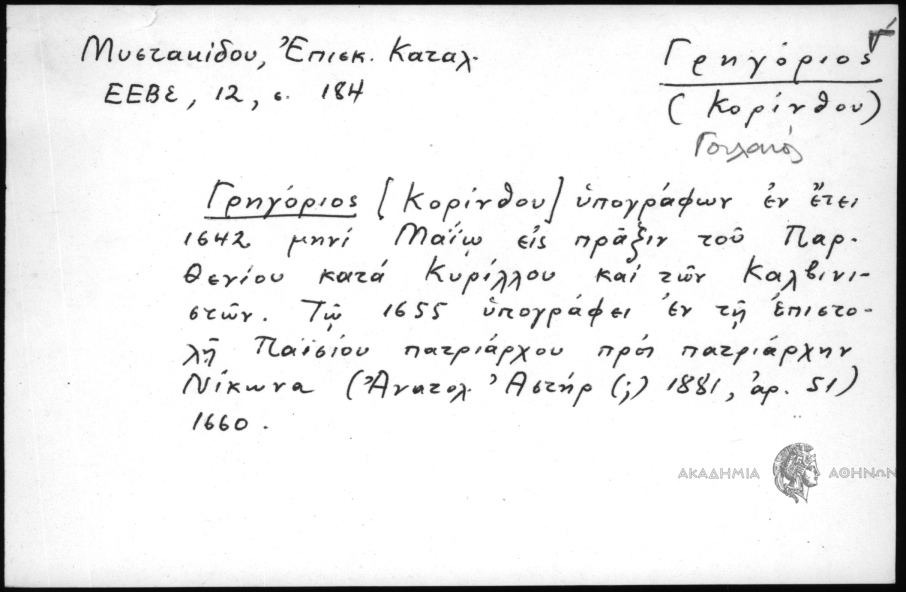 Μυστακίδου, Ἐπισκ. Καταλ.
ΕΕΒΣ, 12, σ. 184
Γρηγόριος
(Κορίνθου)
Γουλανός
Γρηγόριος [Κορίνθου] ὑπογράφων ἐν ἔτει
1642 μηνί Μαΐῳ εἰς πρᾶξιν τοῦ Παρ-
θενίου κατά Κυρίλλου καί τῶν Καλβινι-
στῶν. Τῷ 1655 ὑπογράφει ἐν τῇ ἐπιστο-
λῇ Παϊσίου πατριάρχου πρός πατριάρχην
Νίκωνα (Ἀνατολ. Ἀστήρ (;) 1881, ἀρ. 51)
1660.
ΑΚΑΔΗΜΙΑ ΑΘΗΝΩΝ